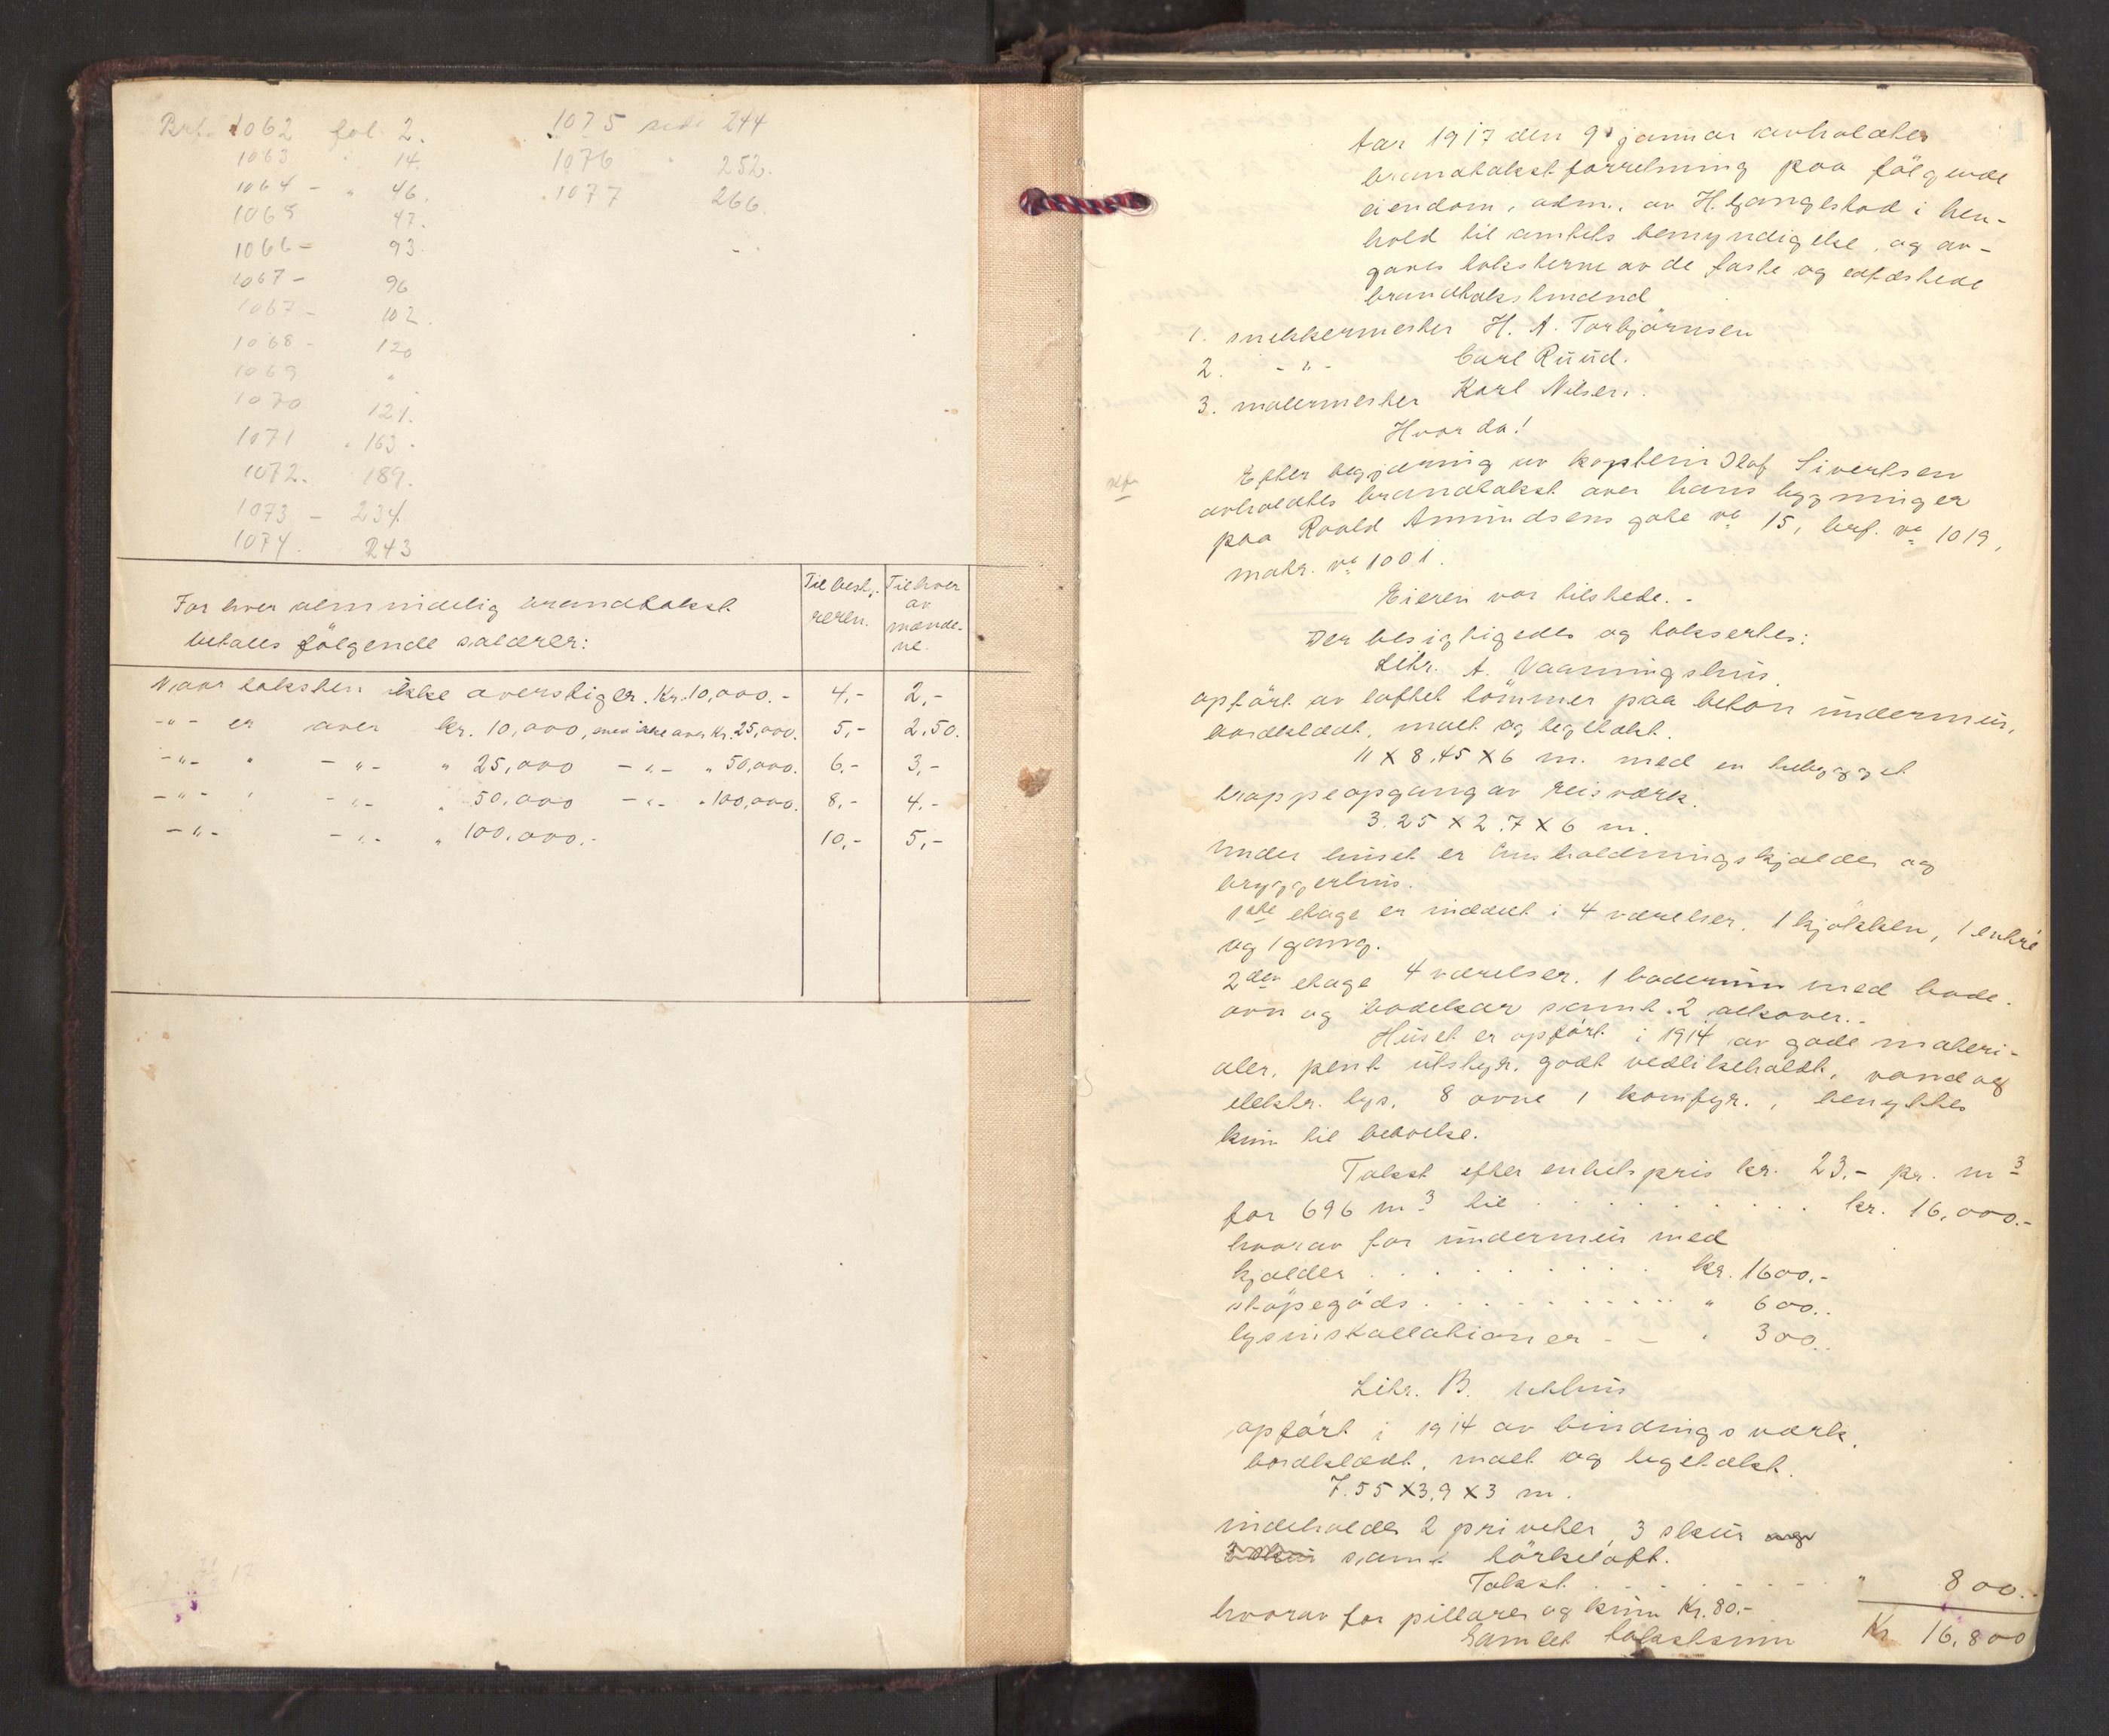 Brf. 1062 fol 2.
1063 " 14.
1064 - " 46.
1065 47.
1066 - 93.
1067 - 96
1067 - 102.
1068 - 120
1069 "
1070 121.
1071 " 163.
1072. 189.
1073 - 234
1074. 243
1075 side 244
1076 " 252.
1077 266.
For hver almindelig brandtakst
betales følgende salærer:
Til besty-
reren.
Til hver
av
mænde-
ne.
Naar taksten ikke overstiger Kr. 10,000.- 4,- 2,-
-"- er over kr. 10,000, men ikke over Kr. 25,000. 5,- 2,50.
-"- " -"- " 25,000 -"- " 50,000. 6,- 3,-
-"- " -"- " 50,000 -"- " 100,000. 8,- 4,-
-"- -"- " 100,000.- 10,- 5,-
Aar 1917 den 9 januar avholdtes
brandtakstforretning paa følgende
eiendom, adm. av H. Gangestad i hen-
hold til amtets bemyndigelse, og av-
gaves taksterne av de faste og edfæstede
brandtakstmænd
1. snekkermester H. A. Torbjörnsen
2. -"- Carl Ruud.
3. malermester Karl Nilsen.
Hvorda!
Efter begjæring av kaptein Olaf Sivertsen
avholdtes brandtakst over hans bygninger
paa Roald Amundsens gate No 15, brf. No 1019,
matr. No 1001.
Eieren var tilstede. -
Der besigtigedes og taksertes:
Litr. A. Vaaningshus
opfört av laftet tömmer paa beton undermur,
bordklædt, malt og teglækt.
11 X 8.45 X 6 m. med en tilbygget
trappeopgang av reisværk.
3.25 X 2.7 X 6 m.
Under huset er husholdningskjælder og
bryggerhus.
1ste etage er inddelt i 4 værelser, 1 kjökken, 1 entré
og 1 gang.
2den etage 4 værelser, 1 baderum med bade-
ovn og badekar samt 2 alkover. -
Huset er opfört i 1914 av gode materi-
aler, pent utstyr, godt vedlikeholdt, vand og
elektr. lys, 8 ovne 1 komfyr., benyttes
kun til beboelse.
Takst efter enhetspris kr. 23.- pr. m3
for 696 m3 til . . . . . . . . kr. 16,000.-
hvorav for undermur med
kjælder . . . . . . . . kr. 1600.-
stöpegods . . . . . . . . " 600..
lysinstallationer - - " 300..
Litr. B. uthus
opfört i 1914 av bindingsværk,
bordklædt, malt og teglækt.
7.55 X 3.9 X 3 m.
indeholder 2 priveter, 3 skur og
3 skur samt törkeloft.
Takst . . . . . . . . " 800.-
hvorav for pillarer og kum Kr. 80.-
Samlet takstsum Kr 16,800